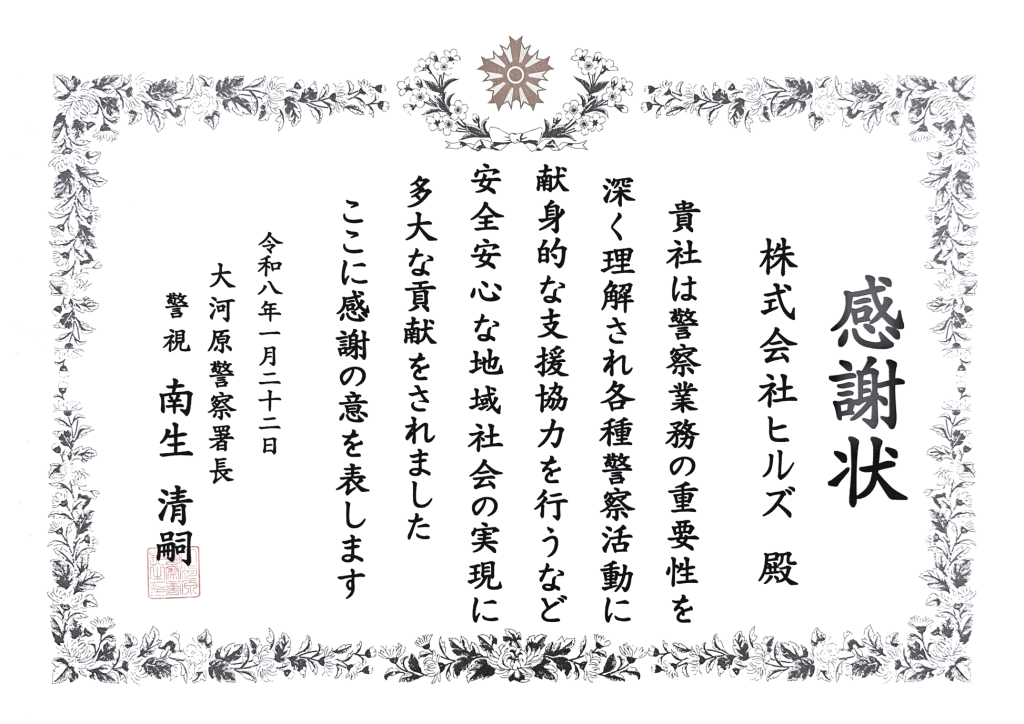 感謝状
株式会社ヒルズ 殿
貴社は警察業務の重要性を
深く理解され各種警察活動に
献身的な支援協力を行うなど
安全安心な地域社会の実現に
多大な貢献をされました
ここに感謝の意を表します
令和八年一月二十二日
大河原警察署長
警視 南生 清嗣